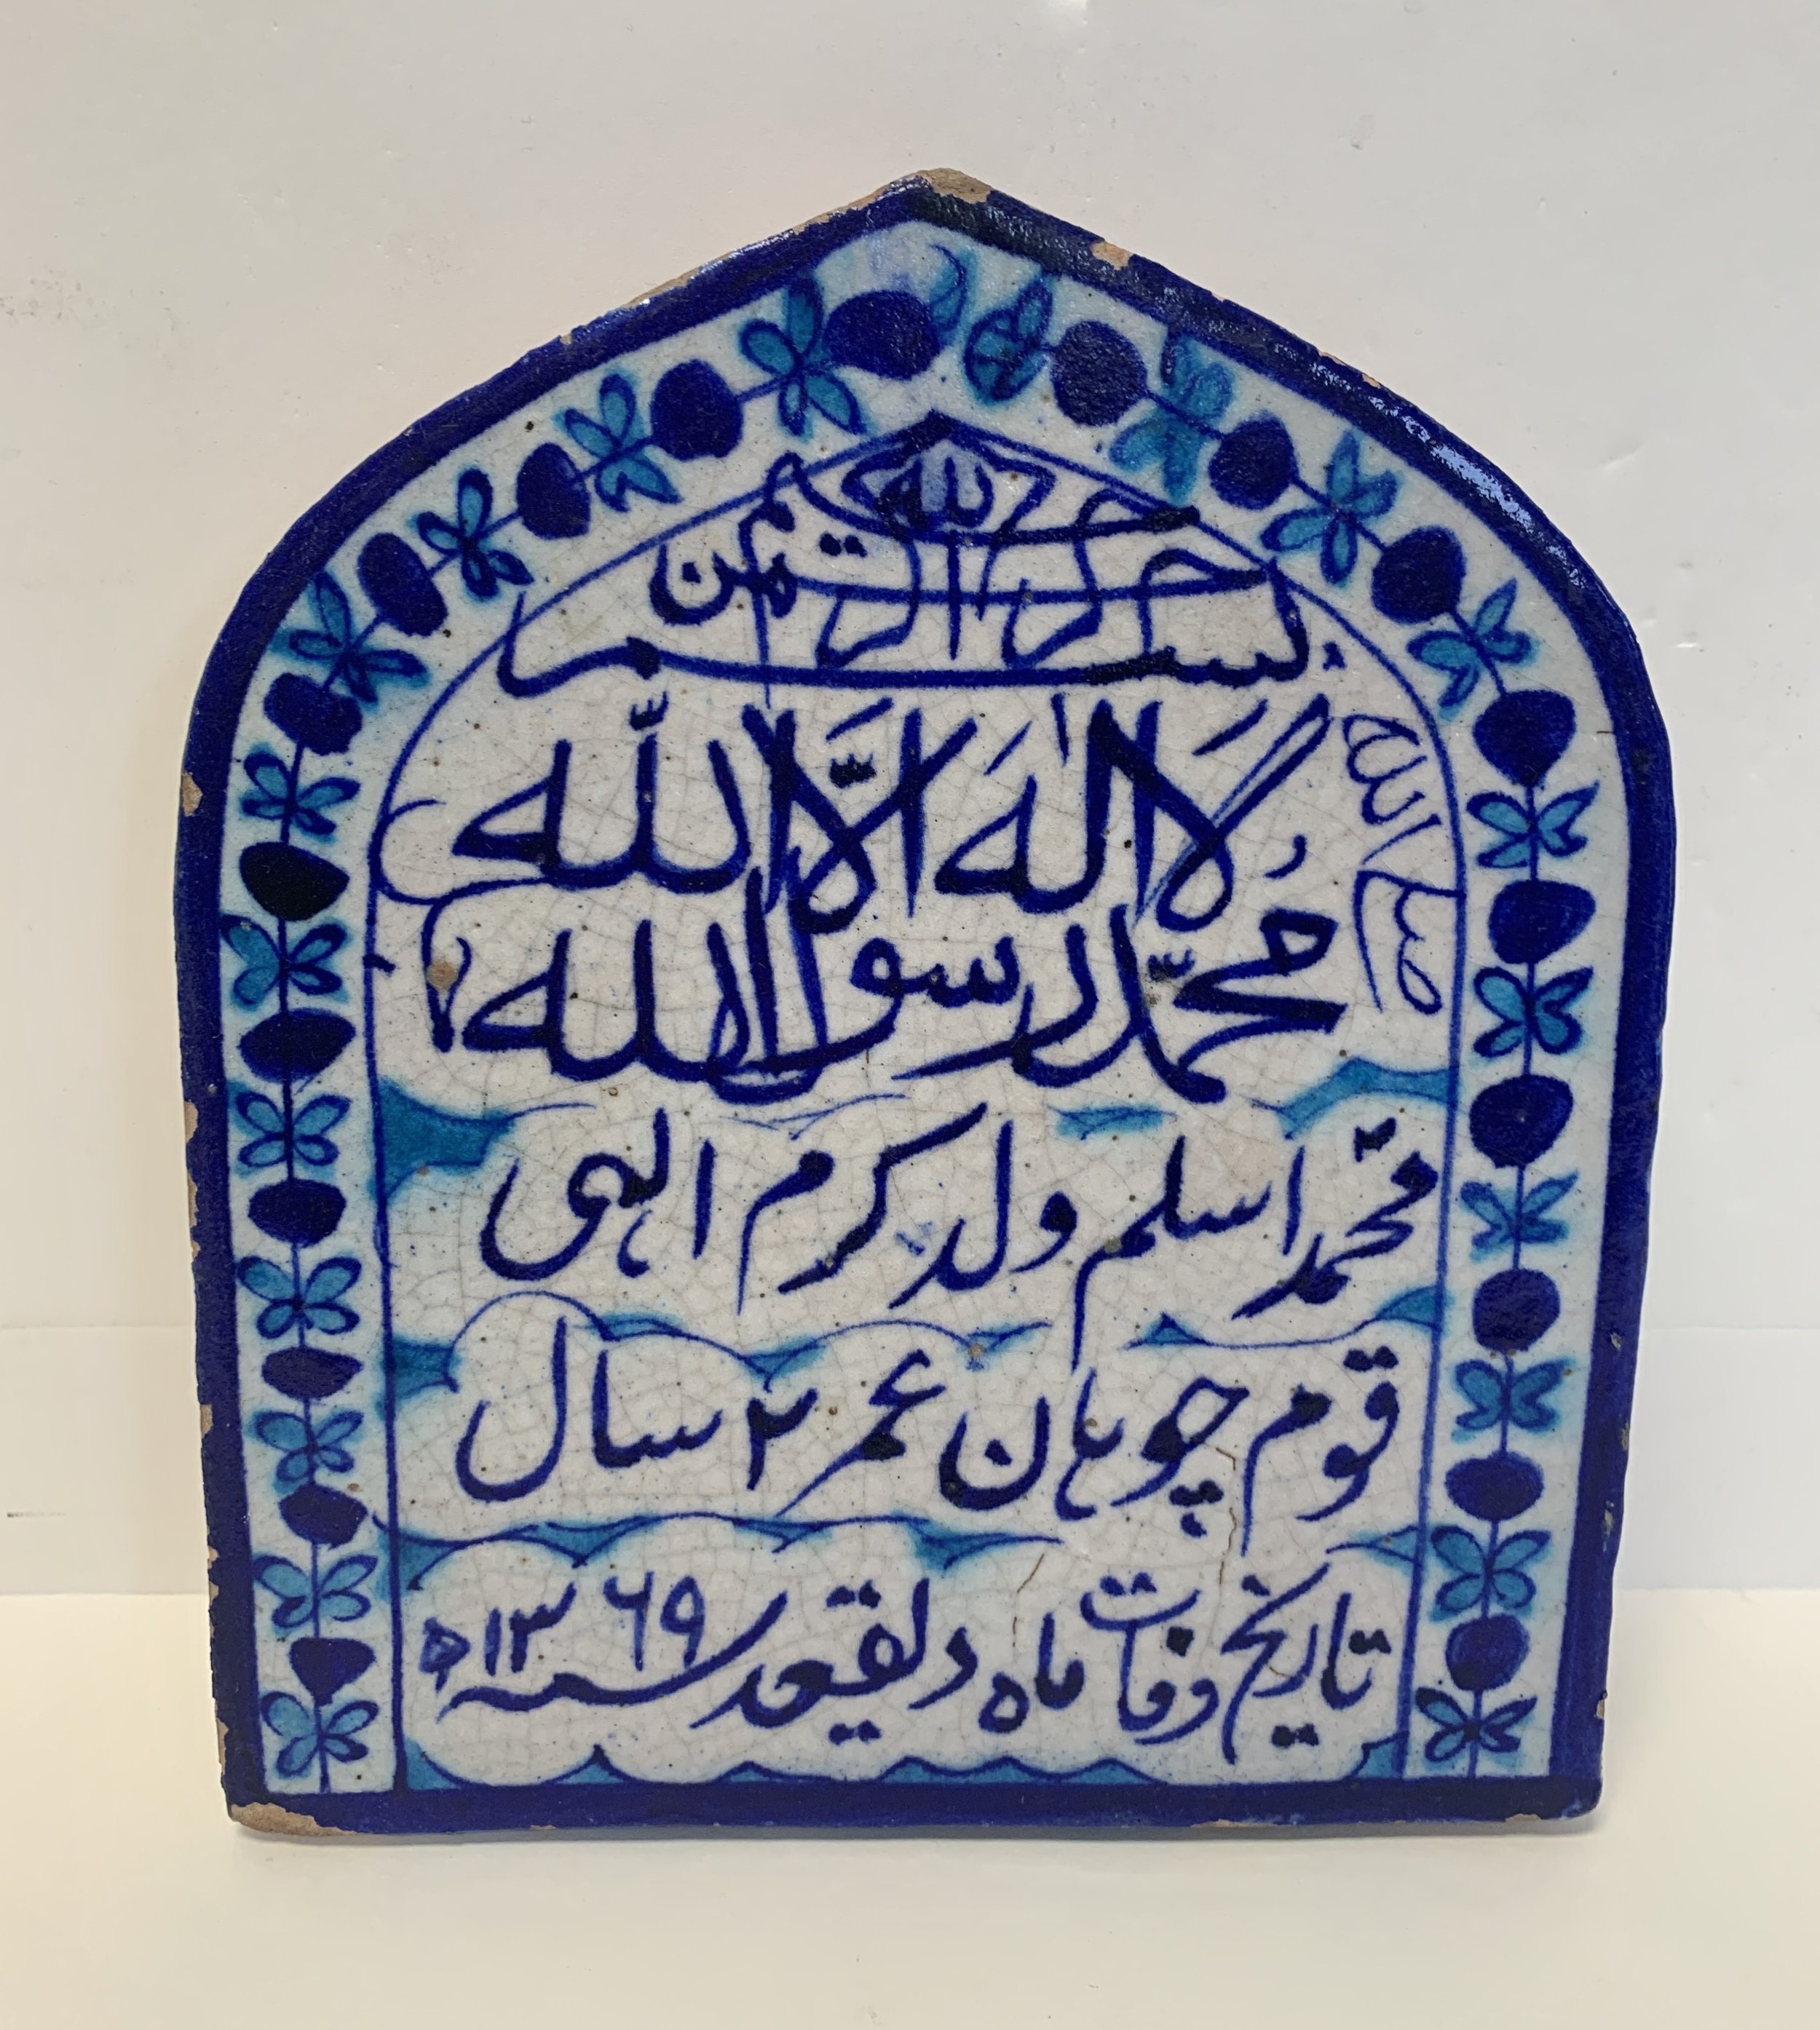 بسم الله الرحمن الرحيم
لا اله الا الله
محمد رسول الله
صلى الله
محمد اسلم ولد کرم الہی
قوم چوہان عمر ۲ سال
تاریخ وفات ماہ ذلقیعد سنہ ۱۳۶۹ھ